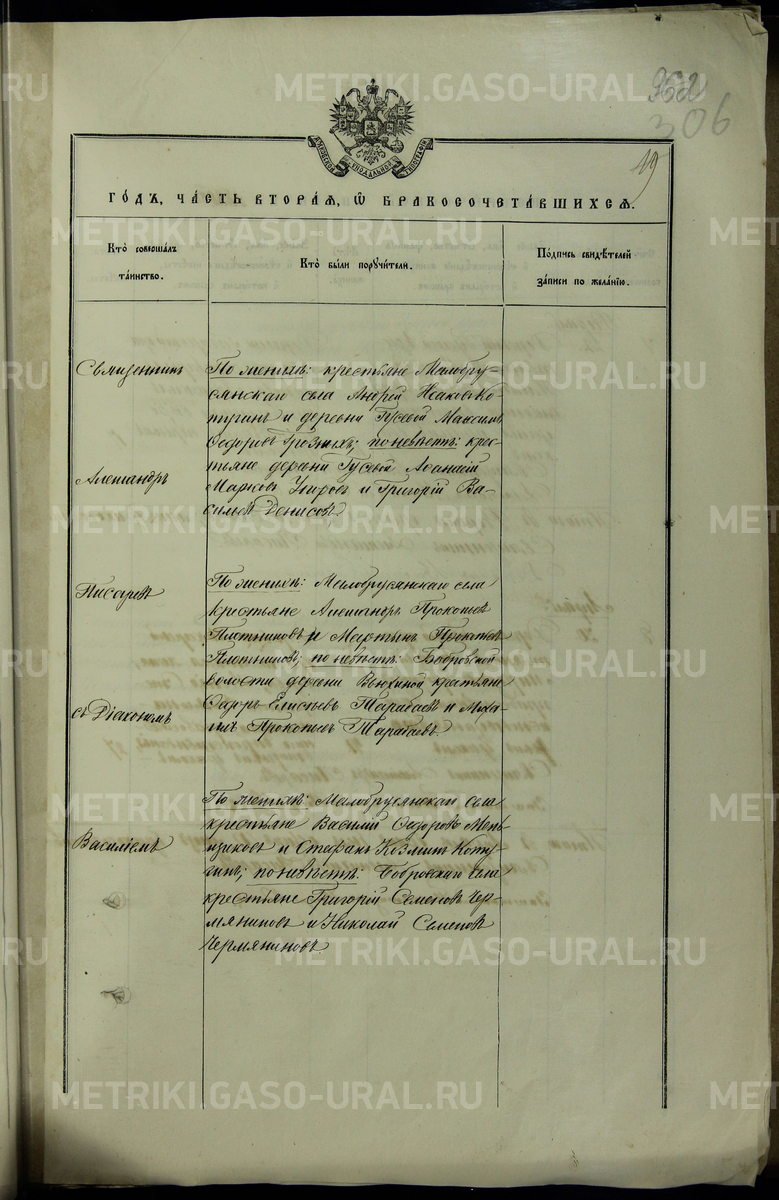 962
306
19
МОСКОВСКОЙ СУНОДАЛЬНОЙ ТИПОГРАФІИ
ГО́ДЪ, ЧА́СТЬ ВТОРА́Я, Ѡ҆ БРАКОСОЧЕТА́ВШИХСЯ.
Кто̀ совершалъ
та́инство.
Кто̀ бы́ли поручи́тели.
По́дпись свидѣ́телей
за́писи по жела́нію.
Священникъ
Александръ
Писаревъ
съ Діакономъ
Василіемъ
По женихѣ: крестьяне Малобру-
сянскаго села Андрей Исаковъ Ко-
тугинъ и деревни Гусевой Максимъ
Ѳедоровъ Грозныхъ; по невѣстѣ: крес-
тьяне деревни Гусевой Аѳанасій
Марковъ и Григорій Ва-
сильевъ Денисовъ.
По женихѣ: Малобрусянскаго села
крестьяне Александръ Прокопьевъ
Плотниковъ и Мартынъ Прокопьевъ
Плотниковъ; по невѣстѣ: Бобровской
волости деревни Вьюхиной крестьяне
Ѳедоръ Елисѣевъ Тарабаевъ и Миха-
илъ Прокопьевъ Тарабаевъ.
По женихѣ: Малобрусянскаго села
крестьяне Василій Ѳедоровъ Мень-
щиковъ и Стефанъ Козминъ Коту-
гинъ; по невѣстѣ: Бобровскаго села
крестьяне Григорій Семеновъ Чер-
мяниновъ и Николай Семеновъ
Чермяниновъ.
METRIKI.GASO-URAL.RU